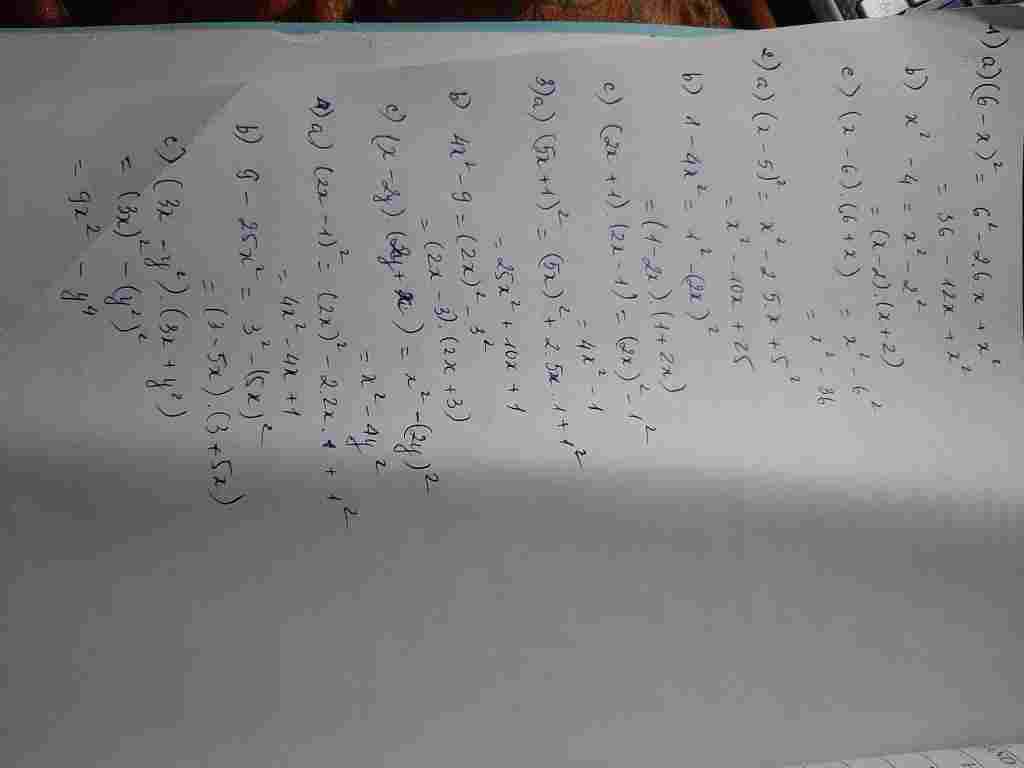 1) a) (6 - x)² = 6² - 26x + x²
= 36 - 12x + x²
b) x² - 4 = x² - 2²
= (x - 2).(x + 2)
c) (x - 6)(6 + x) = x² - 6²
= x² - 36
2) a) (x - 5)² = x² - 2 5x + 5²
= x² - 10x + 25
b) 1 - 4x² = 1² - (2x)²
= (1 - 2x).(1 + 2x)
c) (2x + 1).(2x - 1) = (2x)² - 1²
= 4x² - 1
3) a) (5x + 1)² = (5x)² + 2.5x.1 + 1²
= 25x² + 10x + 1
b) 4x² - 9 = (2x)² - 3²
= (2x - 3).(2x + 3)
c) (x - 2y)(2y + x) = x² - (2y)²
= x² - 4y²
4) a) (2x - 1)² = (2x)² - 2.2x.1 + 1²
= 4x² - 4x + 1
b) 9 - 25x² = 3² - (5x)²
= (3 - 5x).(3 + 5x)
c) (3x - y²).(3x + y²)
= (3x)² - (y²)²
= 9x² - y⁴